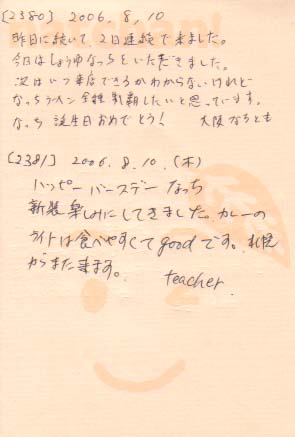 [2380] 2006, 8, 10
昨日に続いて、2日連続で来ました。
今日はしょうゆなっちをいただきました。
次はいつ来店できるかわからないけれど
なっちラーメン全種制覇したいと思っています。
なっち 誕生日おめでとう! 大阪 なると
[2381] 2006. 8. 10. (木)
ハッピーバースデー なっち
新装楽しみにしてきました。カレーの
ライトは食べやすくてgoodです。札幌
からまた来ます。
teacher.